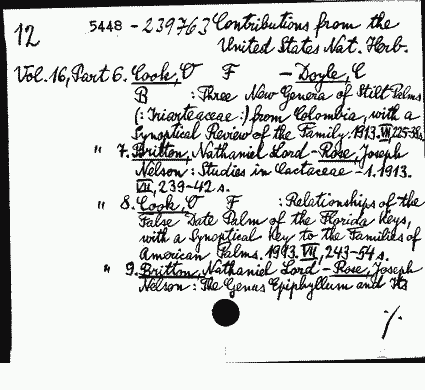 12 5448 - 239763 Contributions from the
United States Nat. Herb.
Vol. 16, Part 6. Cook, O F - Doyle, C
B : Three New Genera of Stilt Palms
(: Iriarteaceae :) from Colombia, with a
Synoptical Review of the Family. 1913. VII, 225-38 s.
" 7. Britton, Nathaniel Lord - Rose, Joseph
Nelson : Studies in Cactaceae - 1. 1913.
VII, 239-42 s.
" 8. Cook, O F : Relationships of the
False Date Palm of the Florida Keys,
with a Synoptical Key to the Families of
American Palms. 1913. VII, 243-54 s.
" 9. Britton, Nathaniel Lord - Rose, Joseph
Nelson : The Genus Epiphyllum and Its
./.